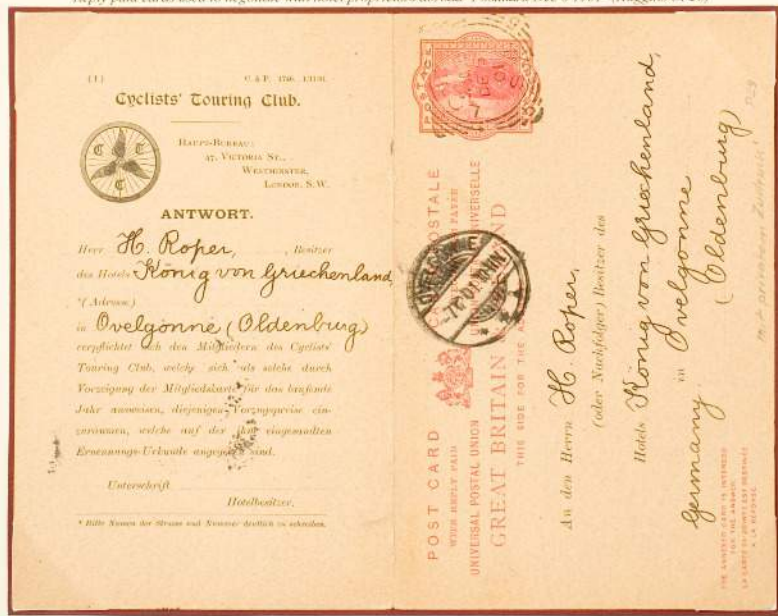 (1)
Cyclists' Touring Club.
HAUPT-BUREAU:
47, VICTORIA ST.,
WESTMINSTER,
LONDON, S.W.
ANTWORT.
Herr H. Roper, Besitzer
des Hotels König von Griechenland,
*(Adresse)
in Ovelgönne (Oldenburg)
verpflichtet sich den Mitgliedern des Cyclists'
Touring Club, welche sich als solche durch
Vorzeigung der Mitgliedskarte für das laufende
Jahr ausweisen, diejenigen Vorzugspreise ein-
zuräumen, welche auf der ihm eingesandten
Ernennungs-Urkunde angegeben sind.
Unterschrift
Hotelbesitzer.
* Bitte Namen der Strasse und Nummer deutlich zu schreiben.
POST CARD
WITH REPLY PAID
UNIVERSAL POSTAL UNION
GREAT BRITAIN
THIS SIDE FOR THE
POSTAGE
DE
01
OVELGÖNNE
An den Herrn H. Roper,
(oder Nachfolger) Besitzer des
Hotels König von Griechenland,
in Ovelgonne
Germany. (Oldenburg)
THE ANNEXED CARD IS INTENDED
FOR THE ANSWER.
LA CARTE CI-JOINTE EST DESTINÉE
À LA RÉPONSE.
mit privatem Zudruck!